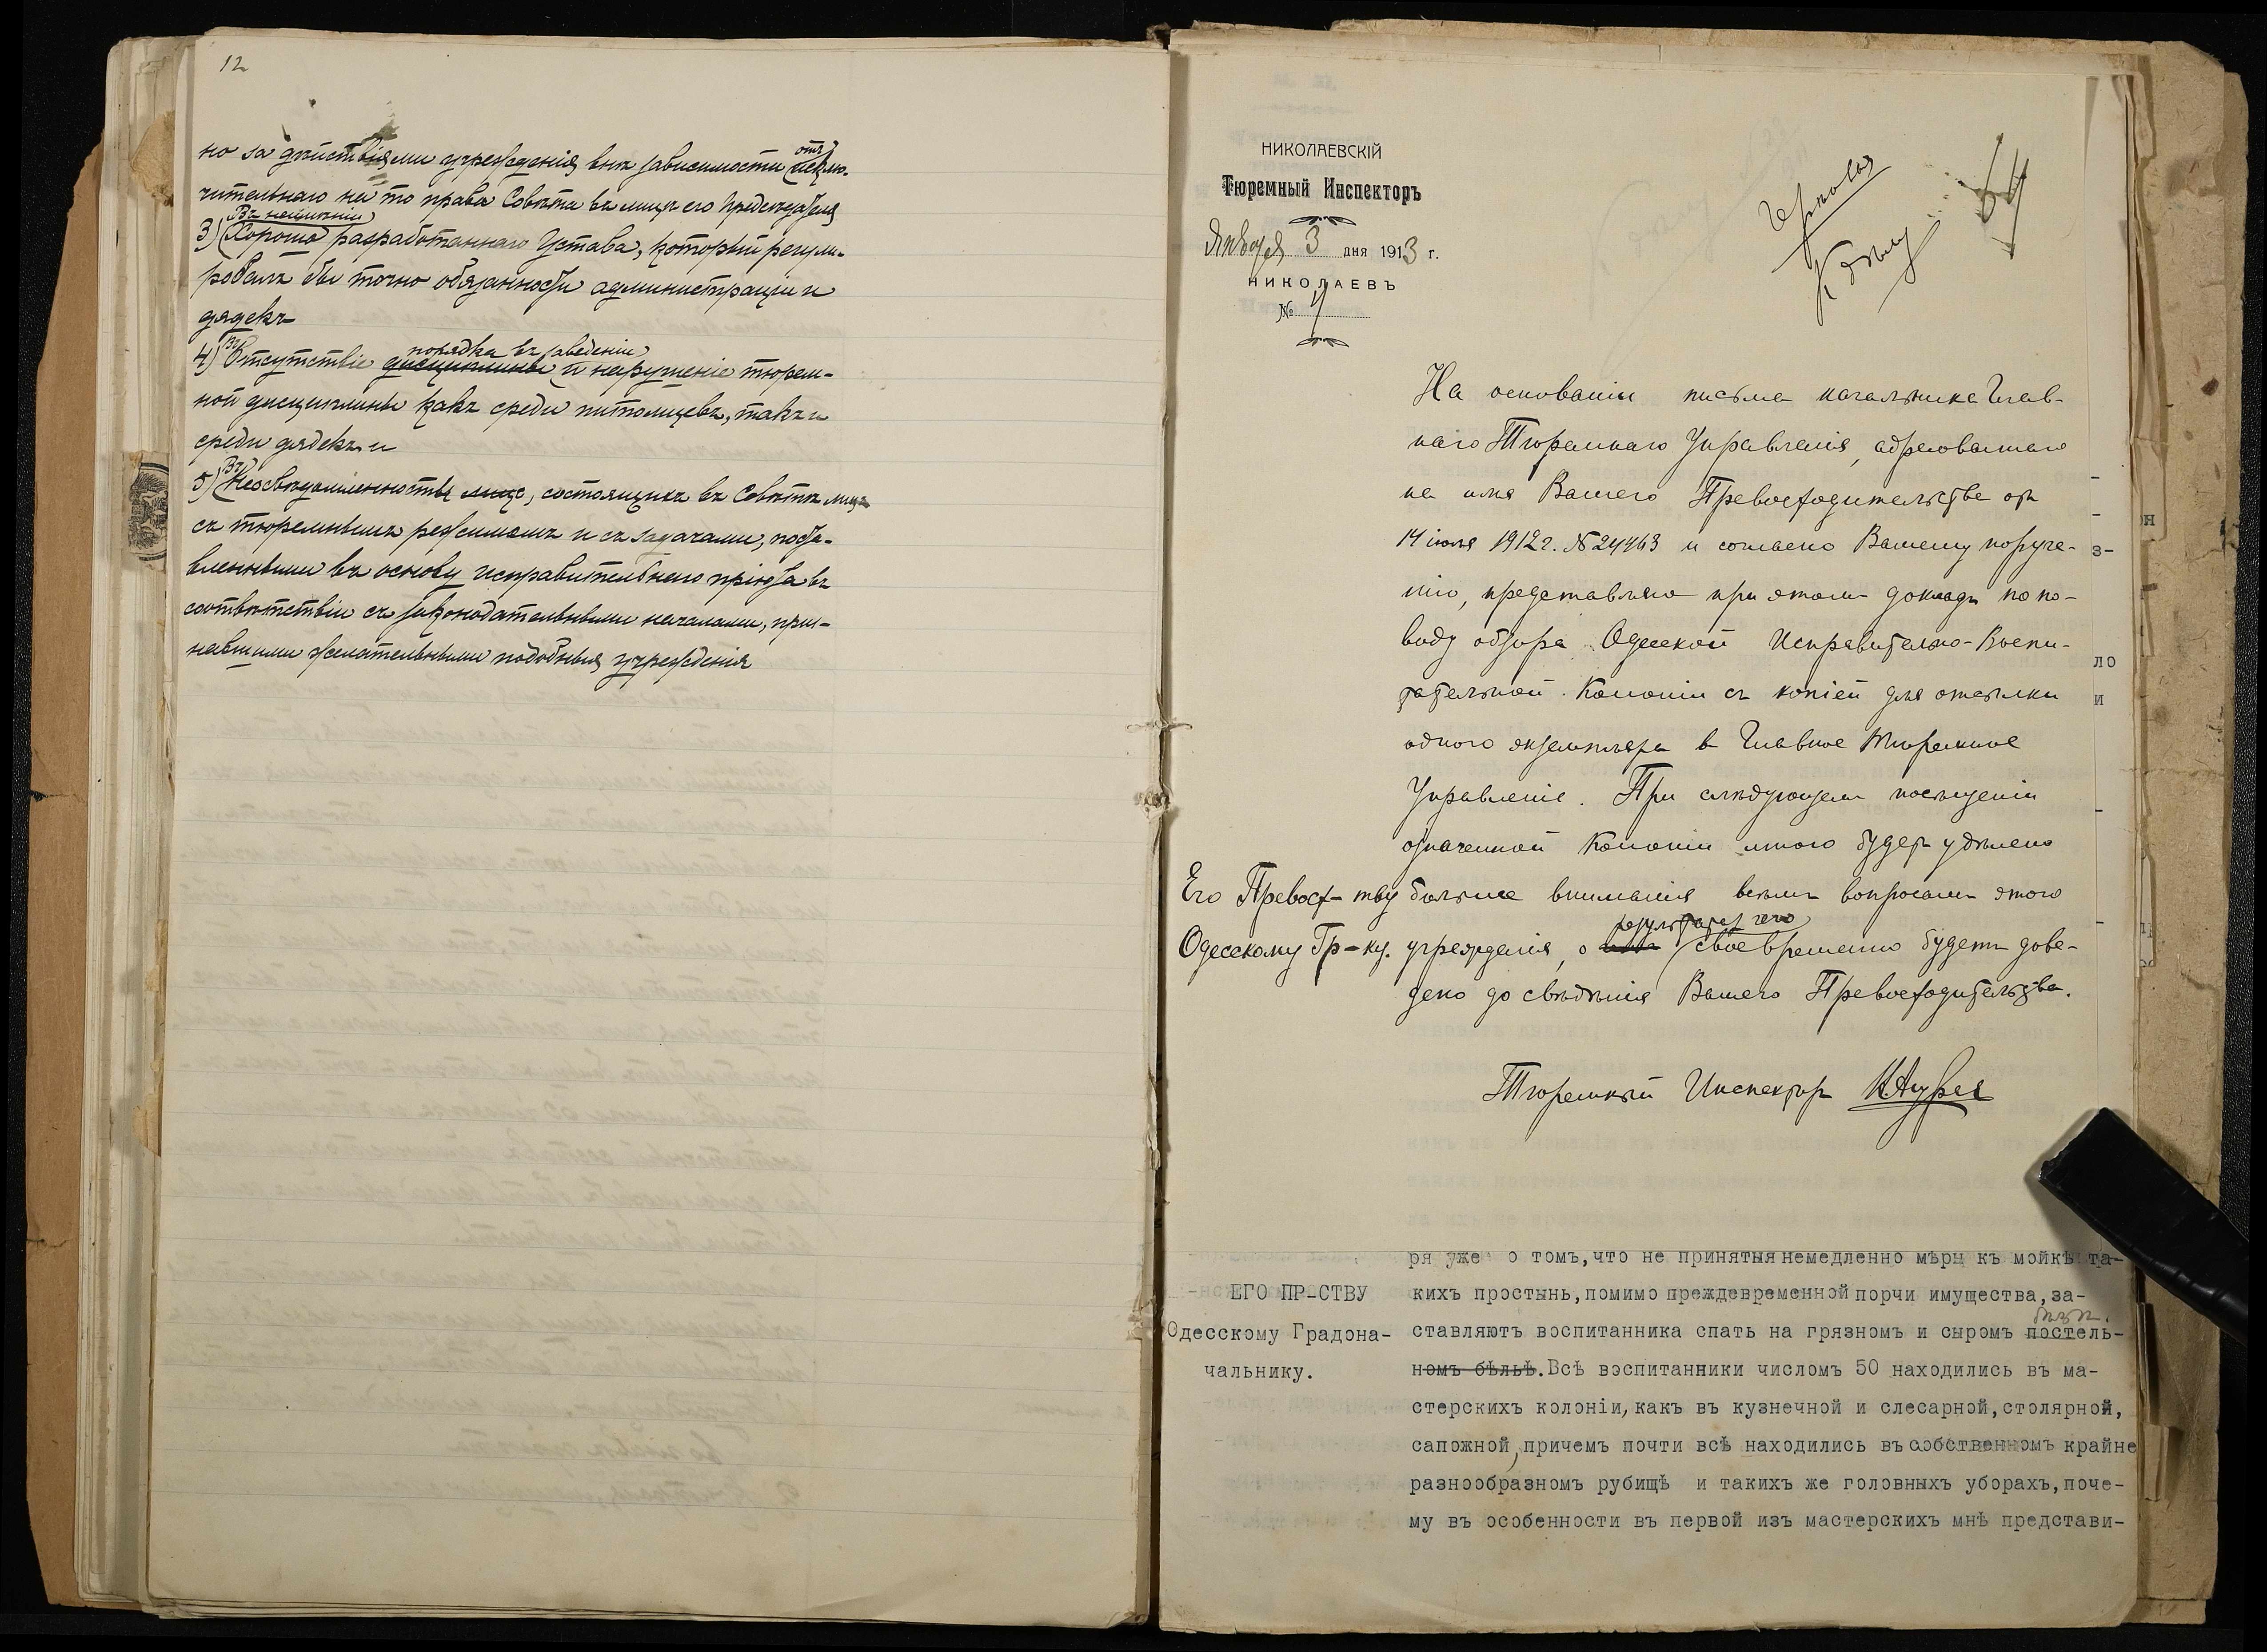 12
но за дѣйствіями учрежденія внѣ зависимости отъ исклю-
чительнаго на то права Совѣта въ лицѣ его предсѣдателя
Въ неимѣніи
3) Хорошо разработаннаго Устава, который регули-
ровалъ бы точно обязанности администраціи и
дядекъ
порядка въ заведеніи
4) Въ Отсутствіе дисциплины и нарушеніе тюрем-
ной дисциплины какъ среди питомцевъ, такъ и
среди дядекъ и
5) Въ Неосвѣдомленность лицъ, состоящихъ въ Совѣтѣ лицъ
съ тюремнымъ режимомъ и съ задачами, поста-
вленными въ основу исправительнаго пріюта въ
соотвѣтствіи съ законодательными началами, приз-
навшими желательными подобныя учрежденія
НИКОЛАЕВСКІЙ
Тюремный Инспекторъ
Января 3 дня 1913 г.
НИКОЛАЕВЪ
№ 4
Къ дѣлу
64
На основаніи письма начальника Глав-
наго Тюремнаго Управленія, адресованнаго
на имя Вашего Превосходительства отъ
14 іюля 1912 г. № 24463 и согласно Вашему поруче-
нію, представляю при этомъ докладъ по по-
воду обзора Одесской Исправительно-Воспи-
тательной Колоніи съ копіей для отсылки
одного экземпляра в Главное Тюремное
Управленіе. При слѣдующемъ посѣщеніи
означенной Колоніи мною будетъ удѣлено
Его Превосх-тву больше вниманія всѣмъ вопросамъ этого
результатъ чего
Одесскому Гр-ку. учрежденія, о своевременно будетъ дове-
дено до свѣдѣнія Вашего Превосходительства.
Тюремный Инспекторъ
ря уже о томъ, что не принятыя немедленно мѣры къ мойкѣ та-
ЕГО ПР-СТВУ кихъ простынь, помимо преждевременной порчи имущества, за-
Одесскому Градона- ставляютъ воспитанника спать на грязномъ и сыромъ постель-
чальнику. номъ бѣльѣ. Всѣ воспитанники числомъ 50 находились въ ма-
стерскихъ колоніи, какъ въ кузнечной и слесарной, столярной,
сапожной, причемъ почти всѣ находились въ собственномъ крайне
разнообразномъ рубищѣ и такихъ же головныхъ уборахъ, поче-
му въ особенности въ первой изъ мастерскихъ мнѣ представи-
з-
ло
и